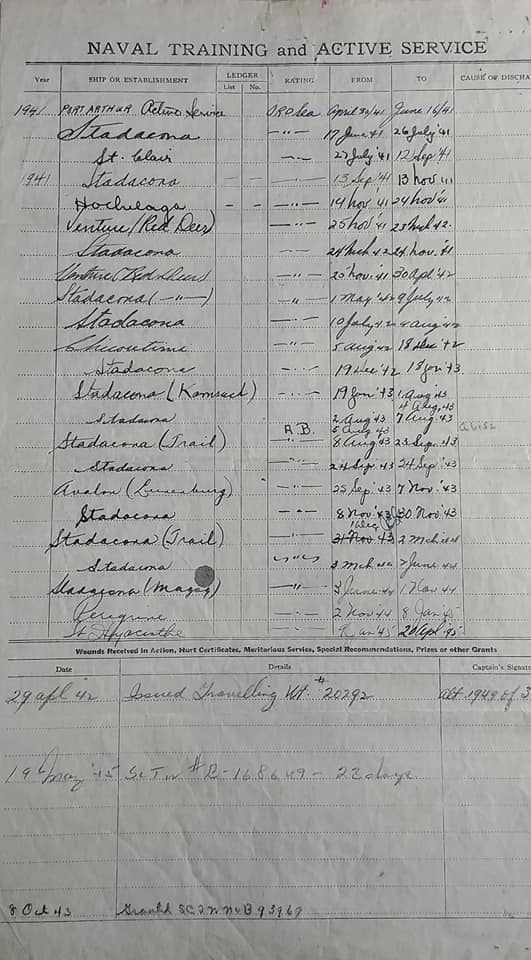 NAVAL TRAINING and ACTIVE SERVICE
Year SHIP OR ESTABLISHMENT LEDGER RATING FROM TO CAUSE OF DISCHA
List No.
1941 PORT ARTHUR Active Service ORD Sea April 30/41 June 16/41
Stadacona -"- 17 June 41 26 July '41
St. Clair -"- 27 July '41 12 Sep '41
1941 Stadacona — — -"- 13 Sep '41 13 Nov 41
Hochelaga - - -"- 14 Nov '41 24 Nov '41
Venture (Red Deer) -"- 25 Nov '41 23 Mch 42.
Stadacona 24 Mch 42 24 Nov. '41
Venture (Red Deer) -"- 25 Nov. 41 30 Apl. '42
Stadacona (-"-) -"- 1 May '42 9 July '42
Stadacona -"- 10 July 42 4 Aug 42
Chicoutimi -"- 5 Aug 42 18 Dec '42
Stadacona -"- 19 Dec '42 18 Jan '43.
Stadacona (Kamsack) -"- 19 Jan '43 1 Aug '43
4 Aug. 43
Stadacona 2 Aug '43 7 Aug '43
A.B. 5 Aug 43
Stadacona (Trail) 8 Aug '43 23 Sep. '43
Stadacona -"- 24 Sep. '43 24 Sep '43
Avalon (Lunenburg) -"- 25 Sep. '43 7 Nov '43
Stadacona -"- 8 Nov '43 30 Nov '43
1 Dec
Stadacona (Trail) -"- 31 Nov '43 2 Mch 44
Stadacona 3 Mch 44 2 June '44
Stadacona (Magog) -"- 3 June 44 1 Nov 44
Peregrine -"- 2 Nov 44 8 Jan 45
St Hyacinthe -"- Jan 45 20 Apl '45
Wounds Received in Action, Hurt Certificates, Meritorious Service, Special Recommendations, Prizes or other Grants
Date Details Captain's Signatu
29 Apl '42 Issued Travelling Wt. # 20292
19 May '45 # B-168649 - 28 days
8 Oct 43 Granted